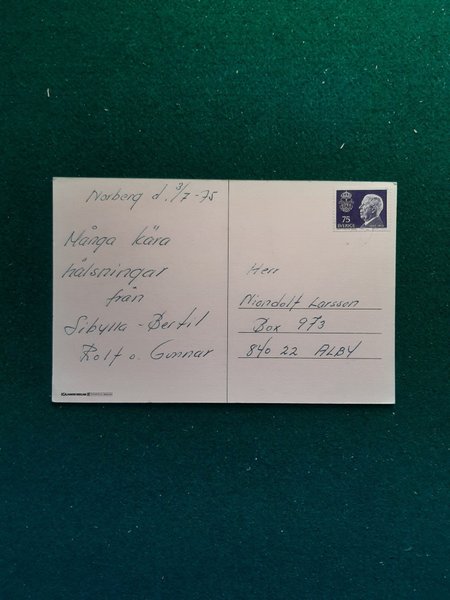 Norberg d. 3/7-75
Många kära
hälsningar
från
Sibylla - Bertil
Rolf o. Gunnar
75
SVERIGE
Herr
Larsson
Box 973
840 22 ALBY